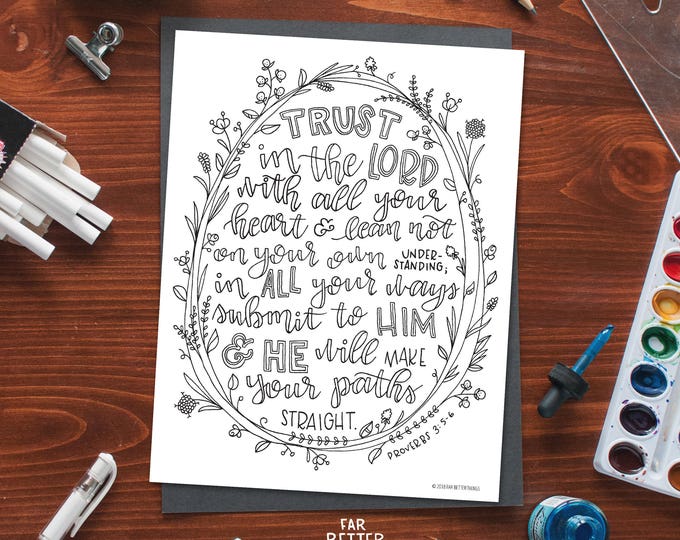 TRUST
in the LORD
with all your
heart & lean not
on your own UNDER-
STANDING;
in ALL your ways
submit to HIM
& HE will MAKE
your paths
STRAIGHT.
PROVERBS 3:5-6
© 2018 FAR BETTER THINGS
FAR
BETTER